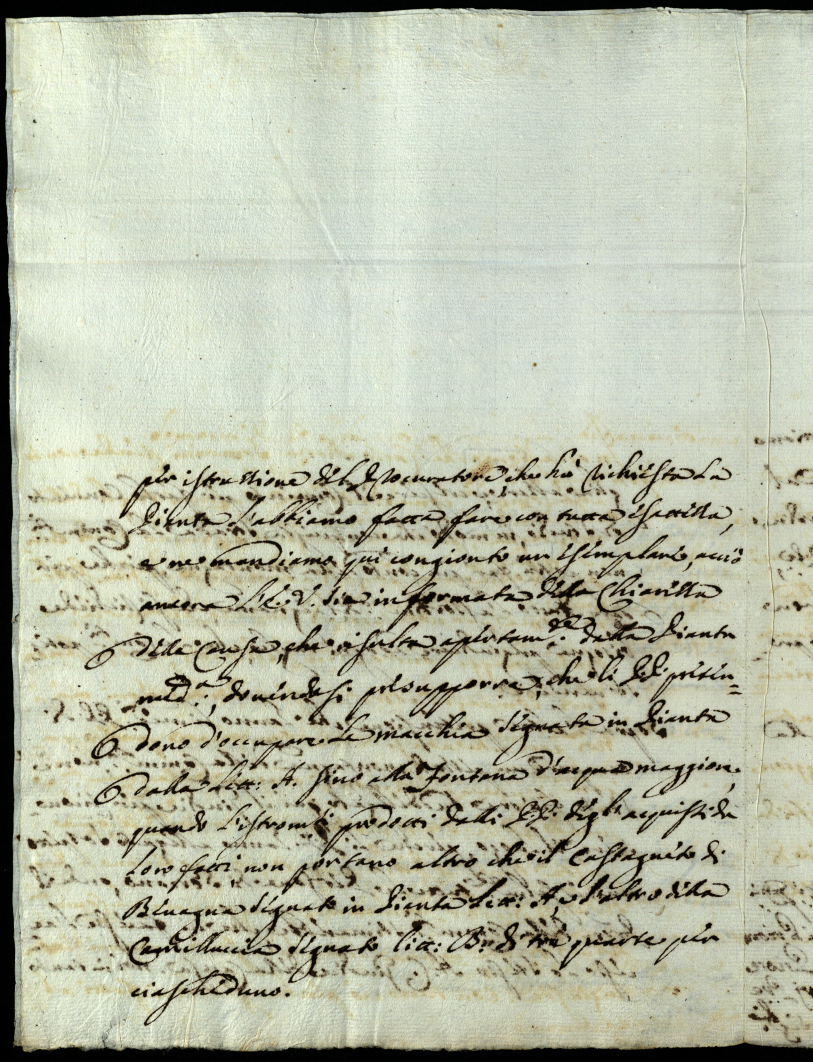 per istruttione del Procuratore che hà richiesta la
Pianta l'abbiamo fatta fare con tutta esattezza,
e ne mandiamo qui congionto un esemplare, acciò
ancora l'E: V. sia informata della Chiarezza
della Causa, che risulta apertam.te dalla Pianta
med.a, dovendosi presupporre, che li PP. preten=
dono d'occupare la macchia segnata in Pianta
dalla Litt: A. sino alla fontana d'acqua maggiore,
quando l'Istromti prodotti dalli PP: degl'acquisti da
loro fatti non portano altro che il Castagneto di
Bevagna segnato in Pianta Litt: A, e l'altro della
Camilluccia segnato litt: B: di trè quarte per
ciascheduno.